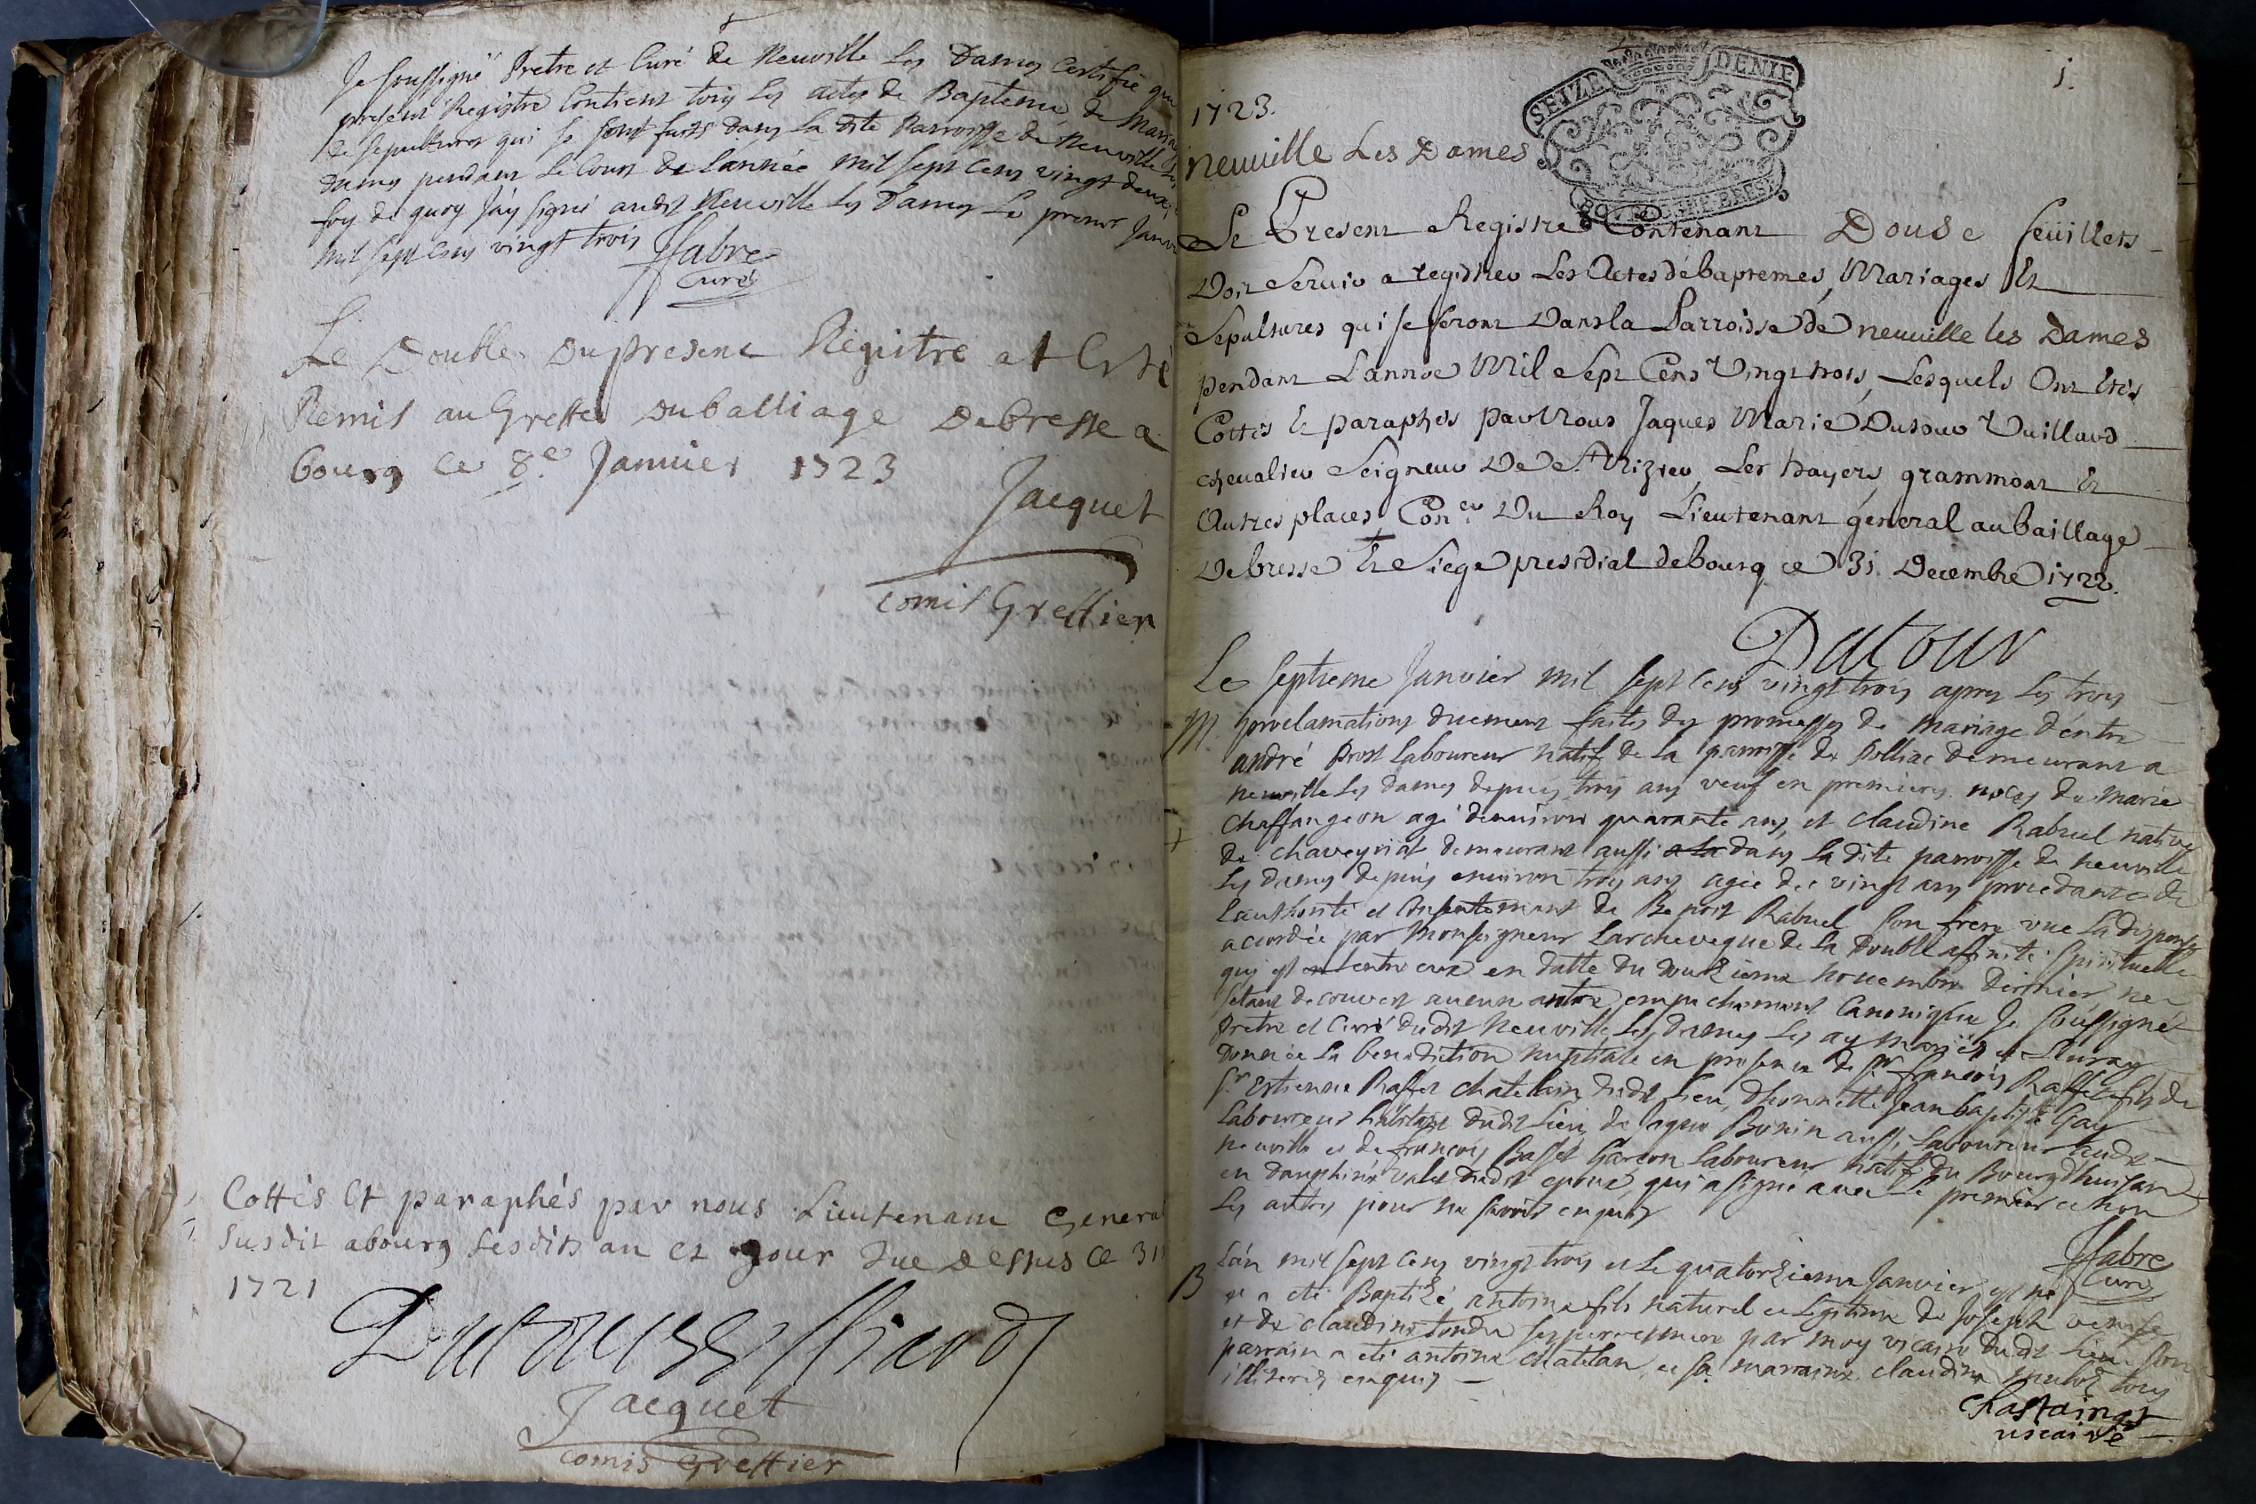 Je soussigné Pretre et Curé de Neuville Les Dames certifie que
present Registre Contient tous Les actes de Bapteme, de Maria
de sepultures qui se sont faits dans La dite Parroisse de Neuville Les
Dames pendant Le Cours de L'année mil sept cens vingt deux,
foy de quoy J'ay signé audit Neuville Les Dames Le premier Janvi
mil sept cens vingt trois
Fabre
Curé
Le Double Du present Régistre at Esté
Remis au Greffe Du balliage De bresse a
bourg Ce 8e. Januier 1723
Jacquet
comis Greffier
Cottés Et paraphés par nous Lieutenant General
Susdit a bourg Lesdits an et jour Que Dessus Ce 31
1721
Jacquet
comis Greffier
SEIZE DENIE
1.
1723.
neuuille Les Dames
Le Present Registre Contenant Douse feüillets
Doit Seruir a registrer Les Actes de baptemes, Mariages Et
Sepultures qui se feront Dans la Parroisse de neuuille les Dames
pendant L'année Mil Sept Cens Vingt trois, Lesquels Ont Etés
Cottés & paraphés par Nous Jaques Marie Dutour Vuillard
cheualier Seigneur De St. Nizier, Les hayers, grammont Et
Autres places, Coner Du Roy Lieutenant géneral au baillage
De bresse Et Siege presidial de bourg ce 31. Decembre 1722.
Dutour
Le septieme Janvier mil sept cens vingt trois apres Les trois
M proclamations duement faites des promesses de Mariage d'entre
andré Prost Laboureur natif de La parroisse de Polliac demeurant a
neuville Les dames depuis trois ans veuf en premieres noces de Marie
Chaffangeon agé d'environ quarante ans, et Claudine Rabuel native
de chaveyriat demeurant aussi a La dans La dite parroisse de neuville
Les dames depuis environ trois ans agée de vingt ans procedante de
L'authorité et Consentement de Benoit Rabuel son frere vue La dispense
accordée par Monseigneur Larcheveque de La double afinité spirituelle
qui est entre eux en datte du douzieme novembre dernier, ne
setant decouvert aucun autre empechement Canonique Je soussigné
Pretre et Curé dudit Neuville Les dames Les ay mariés et Leur ay
donnée La benediction nuptiale en presence de Sr françois Raffet fils de
Sr Estienne Raffet chatelain dudit Lieu, d'honnette Jean baptiste Gay
Laboureur habitant dudit Lieu, de Bonin aussi Laboureur dudt
neuville et de françois Basset Garcon Laboureur natif du Bourg
en dauphiné valet dudit epoux, qui a signé avec Le premier et non
Les autres pour ne savoir enquis
Fabre
Curé
B L'an mil sept cens vingt trois et Le quatorzieme Janvier est né
et a eté Baptizé antoine fils naturel et Legitime de Joseph
et de claudine tondu ses pere et mere par moy vicaire dudit Lieu son
parrain a eté antoine chatelan et sa marraine claudine tous
illiterés enquis
Chastaingt
uicaire